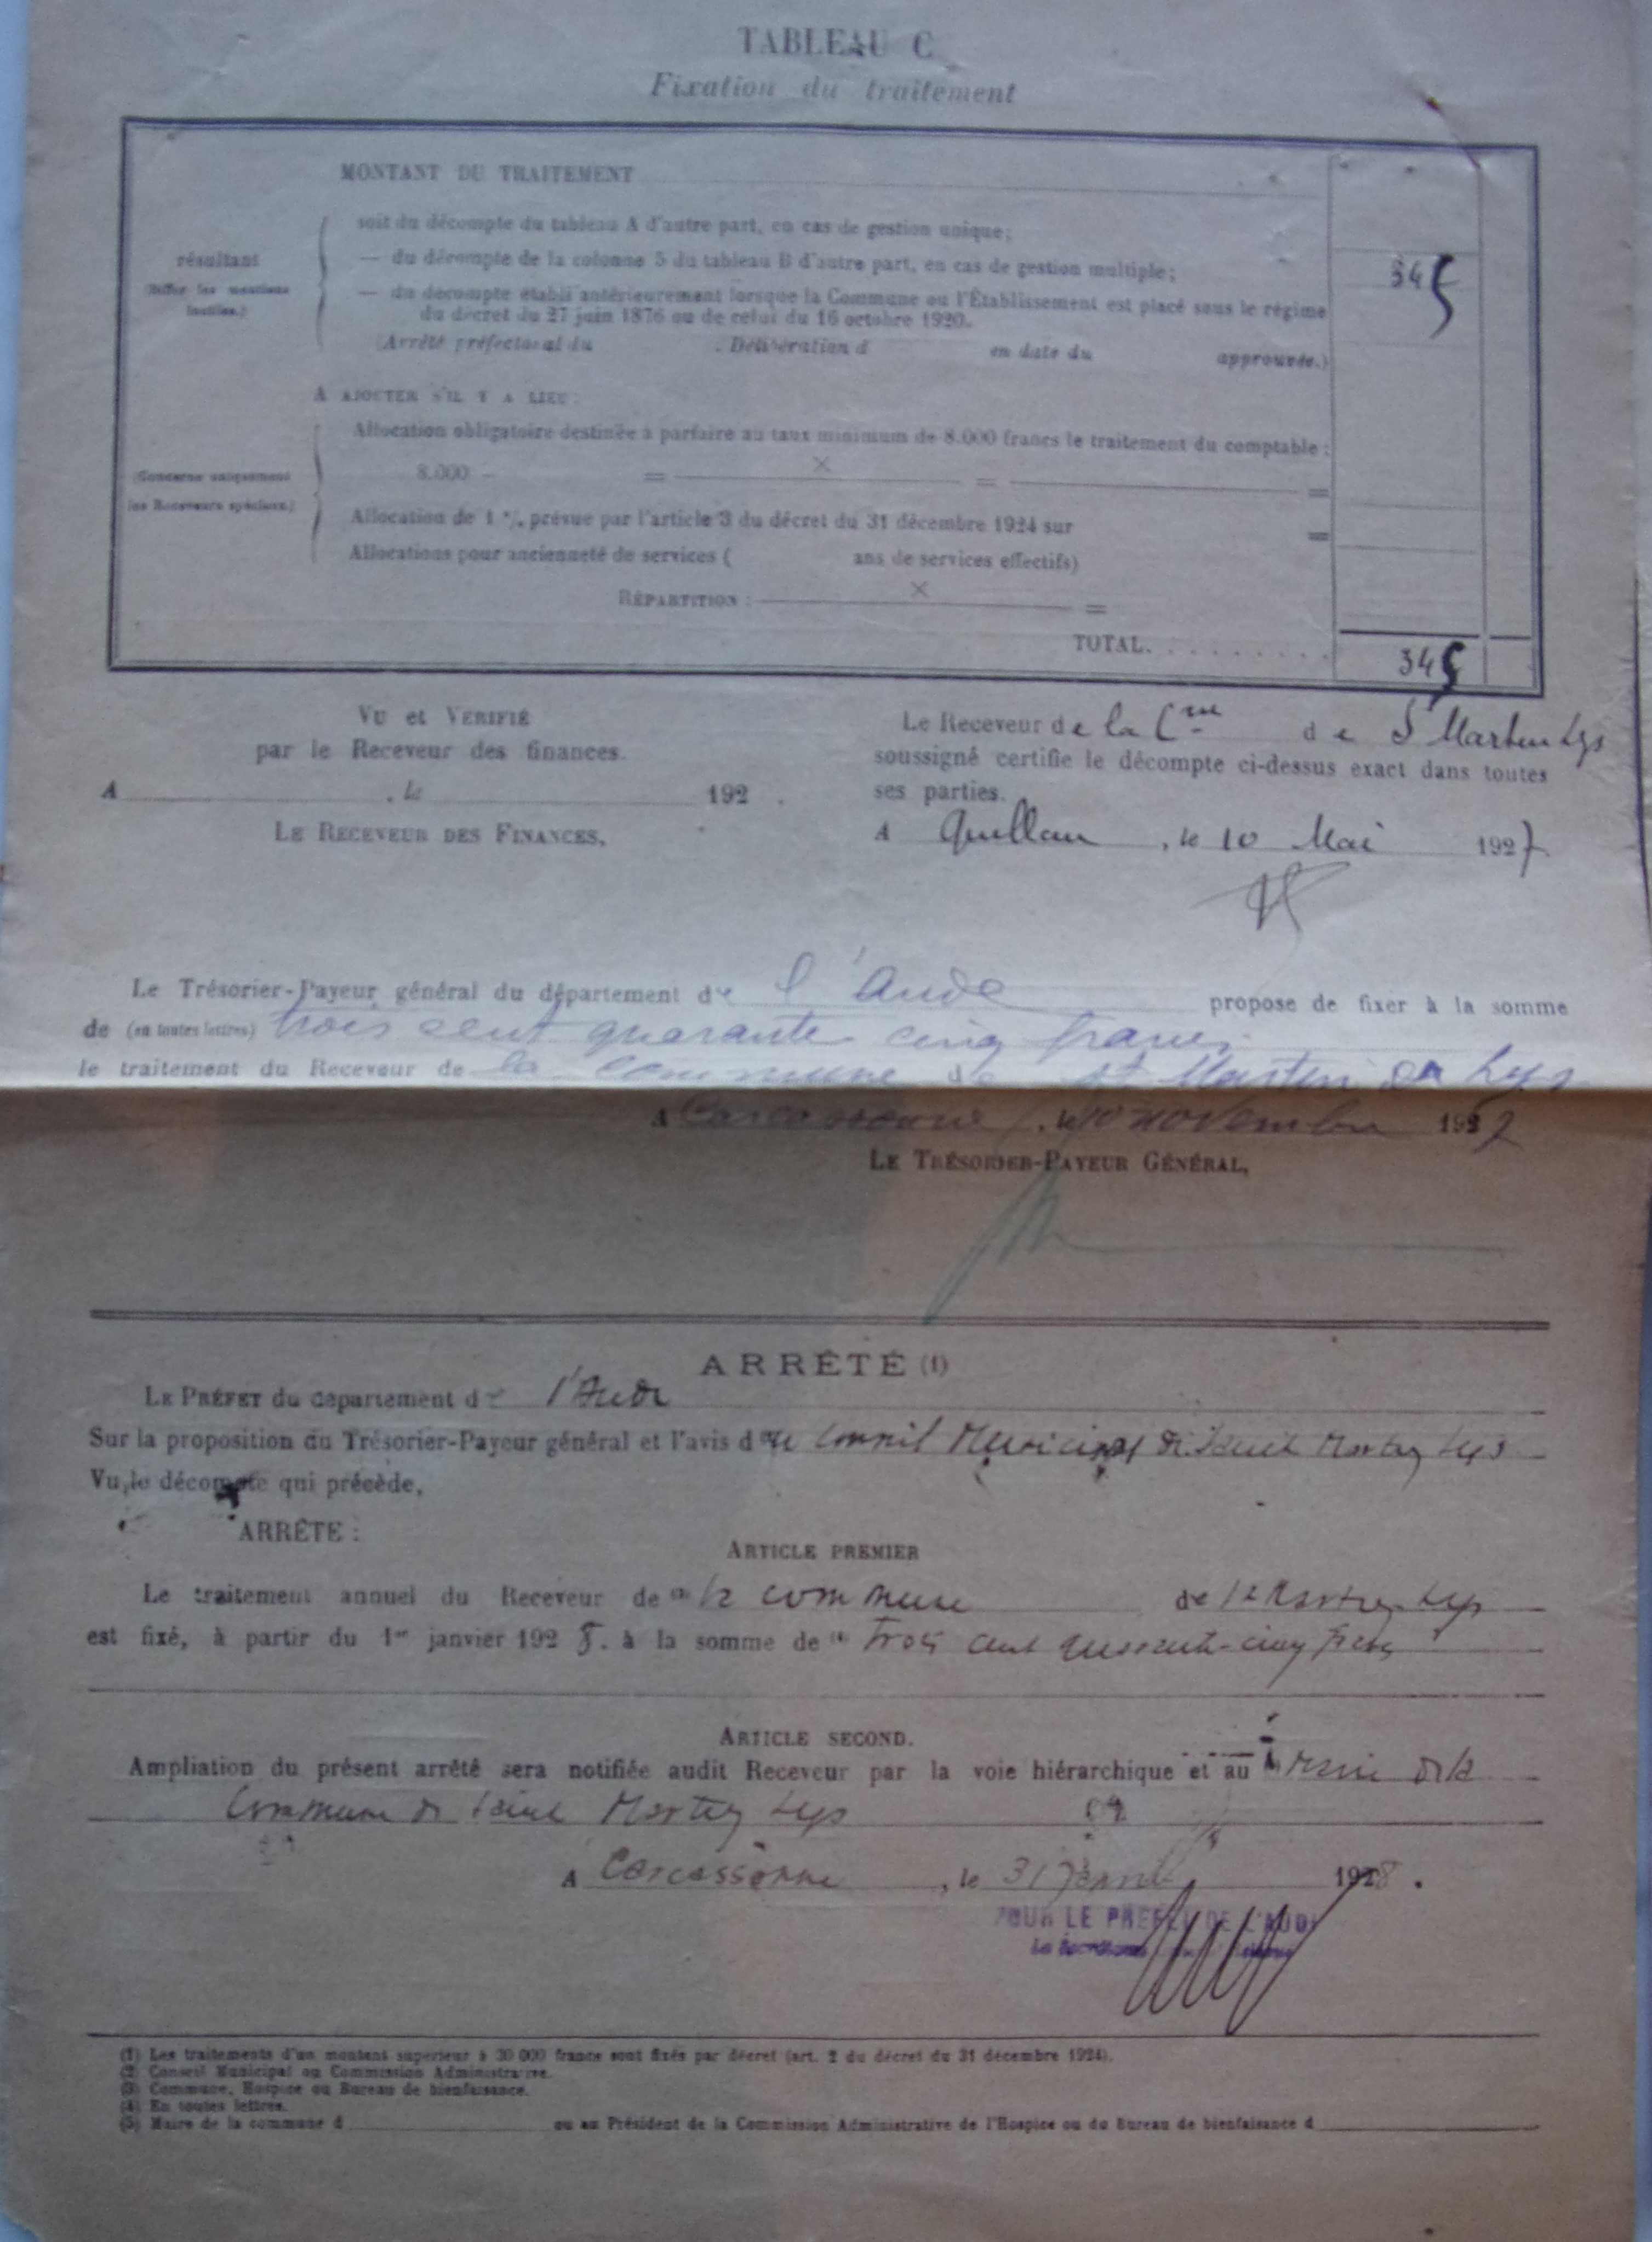 TABLEAU C
Fixation du traitement
MONTANT DU TRAITEMENT
résultant
(Biffer les mentions
inutiles.)
soit du décompte du tableau A d'autre part, en cas de gestion unique;
— du décompte de la colonne 5 du tableau B d'autre part, en cas de gestion multiple;
345
— du décompte établi antérieurement lorsque la Commune ou l'Établissement est placé sous le régime
du décret du 27 juin 1876 ou de celui du 16 octobre 1920.
(Arrêté préfectoral du . Délibération d en date du approuvée.)
A AJOUTER S'IL Y A LIEU:
(Concerne uniquement
les Receveurs spéciaux.)
Allocation obligatoire destinée à parfaire au taux minimum de 8.000 francs le traitement du comptable :
8.000 — = × = =
Allocation de 1 % prévue par l'article 3 du décret du 31 décembre 1924 sur =
Allocations pour ancienneté de services ( ans de services effectifs)
RÉPARTITION : × =
TOTAL. . . . . . . . . 345
VU et VÉRIFIÉ
par le Receveur des finances.
A , le 192 .
LE RECEVEUR DES FINANCES,
Le Receveur de la Cne de St Martin Lys
soussigné certifie le décompte ci-dessus exact dans toutes
ses parties.
A Quillan , le 10 Mai 1927
Le Trésorier-Payeur général du département de l'Aude propose de fixer à la somme
de (en toutes lettres) trois cent quarante cinq francs
le traitement du Receveur de la commune de St Martin Lys
A Carcassonne , le 10 novembre 1927
LE TRÉSORIER-PAYEUR GÉNÉRAL,
ARRÊTÉ (1)
LE PRÉFET du département de l'Aude
Sur la proposition du Trésorier-Payeur général et l'avis du Conseil Municipal de Saint Martin Lys
Vu le décompte qui précède,
ARRÊTE :
ARTICLE PREMIER
Le traitement annuel du Receveur de la commune de St Martin Lys
est fixé, à partir du 1er janvier 1928. à la somme de trois cent quarante-cinq francs
ARTICLE SECOND.
Ampliation du présent arrêté sera notifiée audit Receveur par la voie hiérarchique et au Maire de la
Commune de Saint Martin Lys
A Carcassonne , le 31 1928.
POUR LE PREFET DE L'AUDE
(1) Les traitements d'un montant supérieur à 30 000 francs sont fixés par décret (art. 2 du décret du 31 décembre 1924).
(2) Conseil Municipal ou Commission Administrative.
(3) Commune, Hospice ou Bureau de bienfaisance.
(4) En toutes lettres.
(5) Maire de la commune d ou au Président de la Commission Administrative de l'Hospice ou du Bureau de bienfaisance d